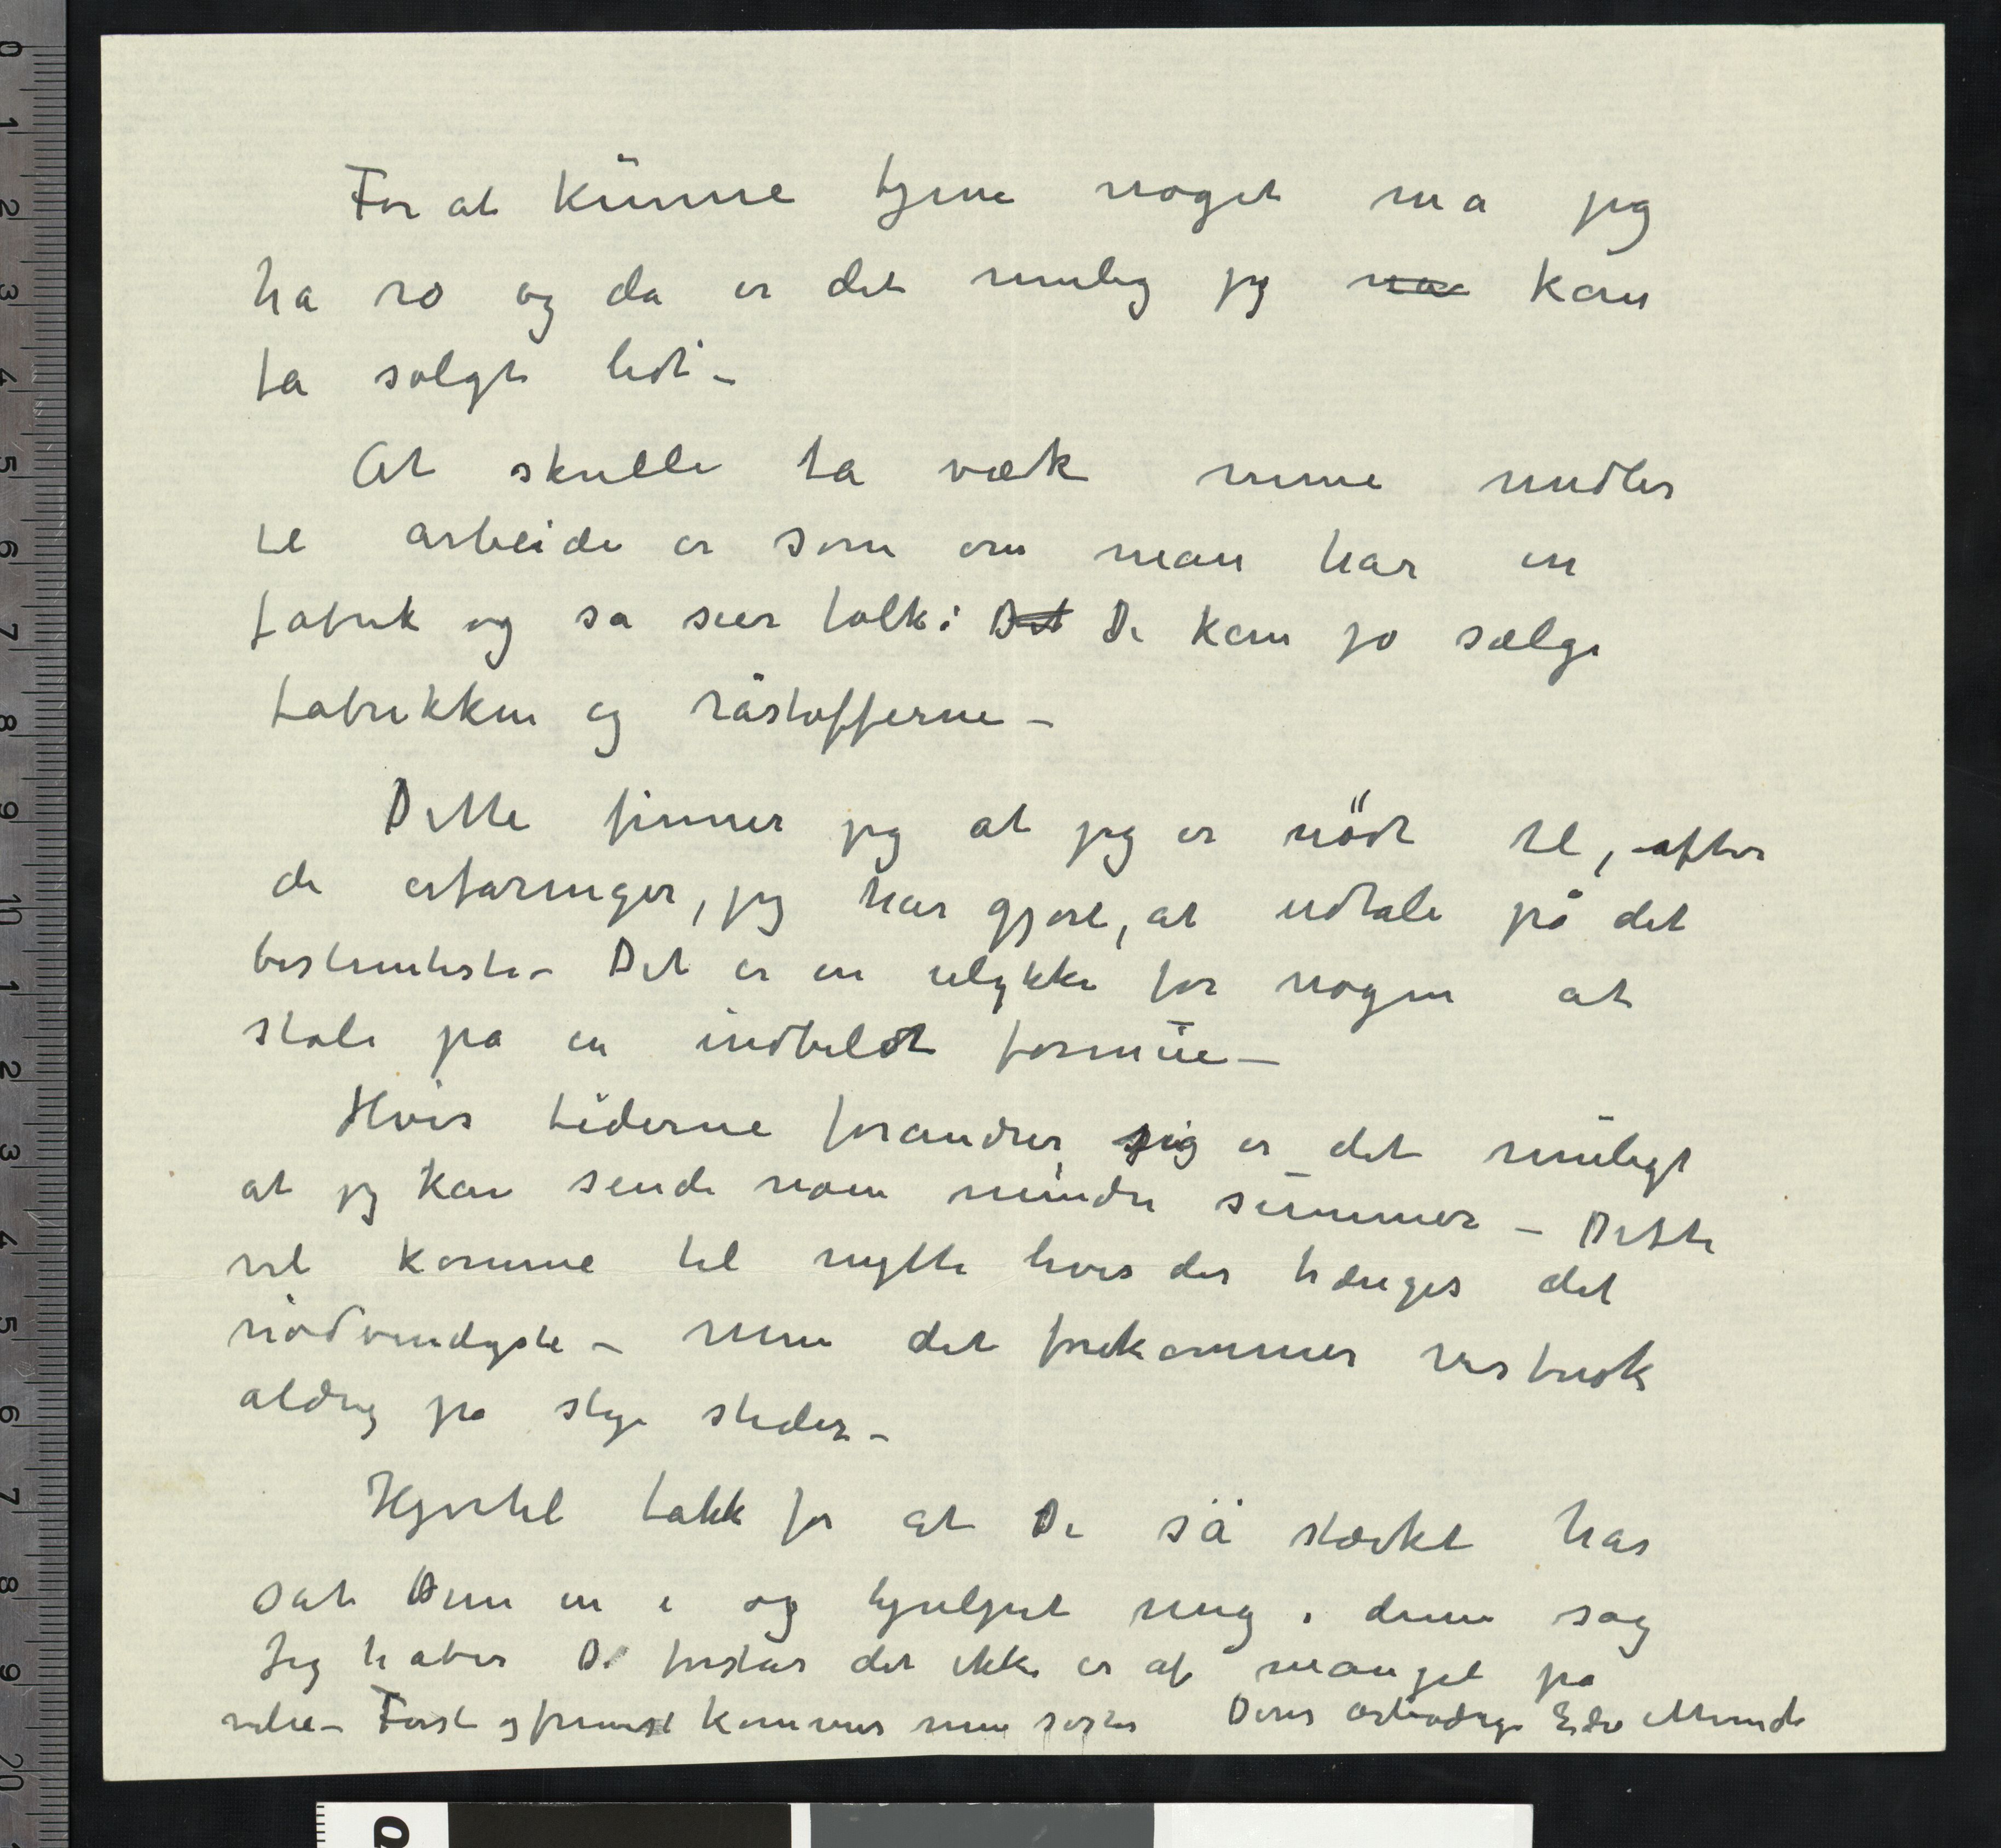 For at kunne tjene noget ma jeg
ha ro og da er det mulig jeg na kan
fa solgt lidt –
At skulle ta væk mine midler
til arbeide er som om man har en
fabrik og sa sier folk: Det De kan jo sælge
fabrikken og råstofferne –
Dette finner jeg at jeg er nödt til, after
de erfaringer, jeg har gjort, at udtale på det
bestemteste – Det er en ulykke for nogen at
stole pa en indbildt formue –
Hvis tiderne forandrer sig er det muligt
at jeg kan sende noen mindre summer – Dette
vil komme til nytte hvis der trænges det
nödvendigste – men det forekommer vistnok
aldrig pa slige steder –
Hjertelig takk for at De så stærkt har
sat Dem in i og hjulpet mig i denne sag
Jeg haber De forstar det ikke er af mangel pa
vilie – Først og fremst kommer min søster Deres ærbødige Edv Munch
0
1
2
3
4
5
6
7
8
9
10
1
2
3
4
5
6
7
8
9
20